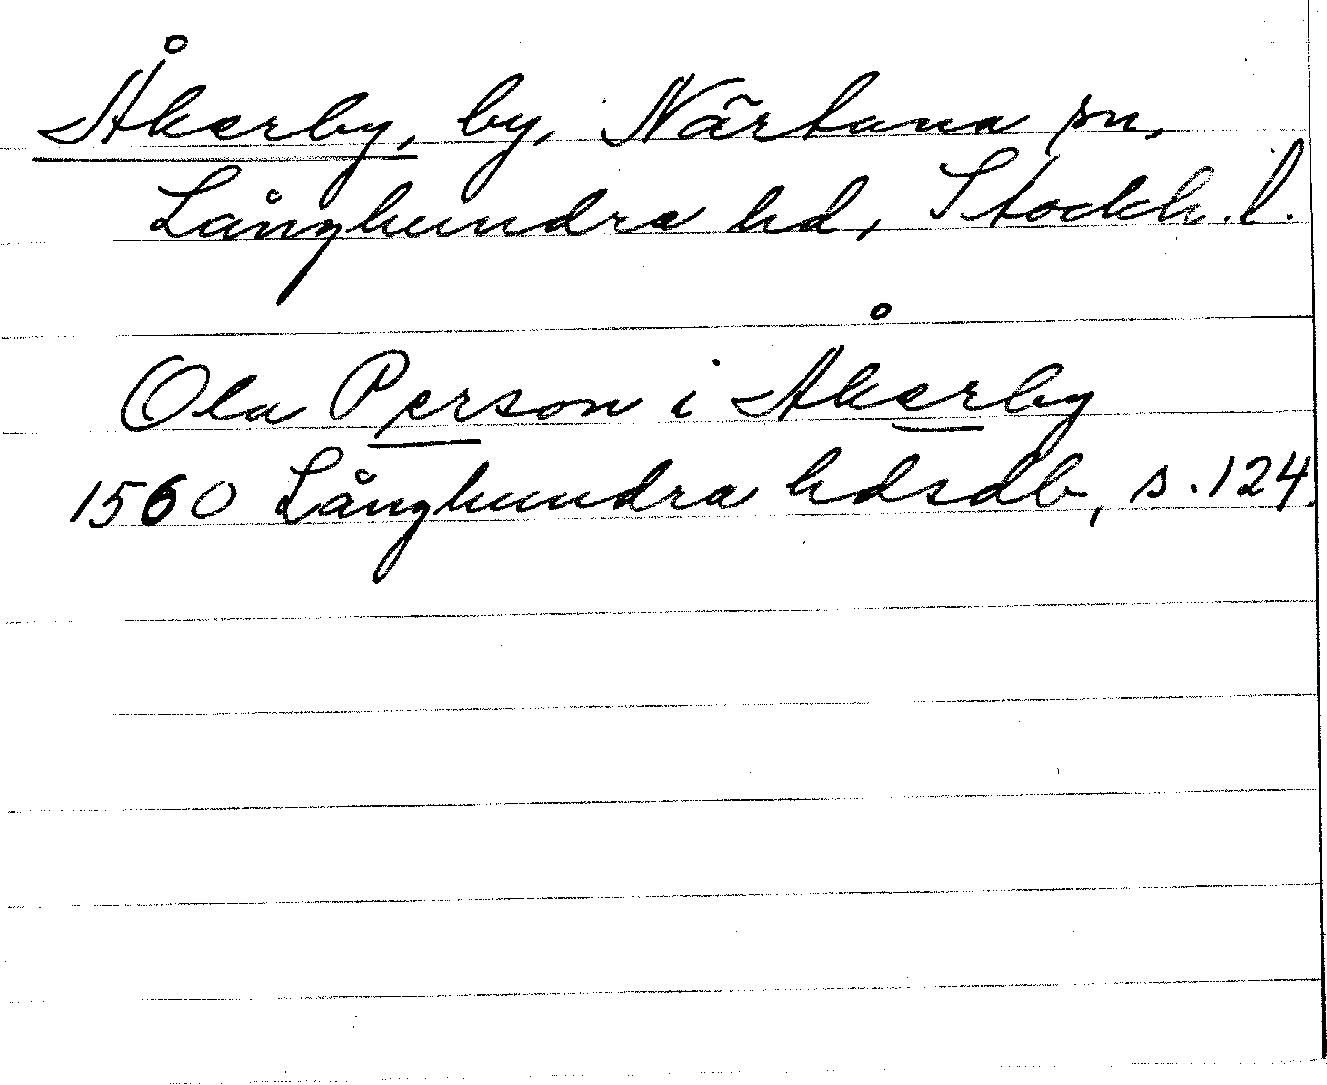 Åkerby, by, Närtuna sn,
Långhundra hd, Stockh. l.
Ola Person i Åkerby
1560 Långhundra hdsdb, s. 124.